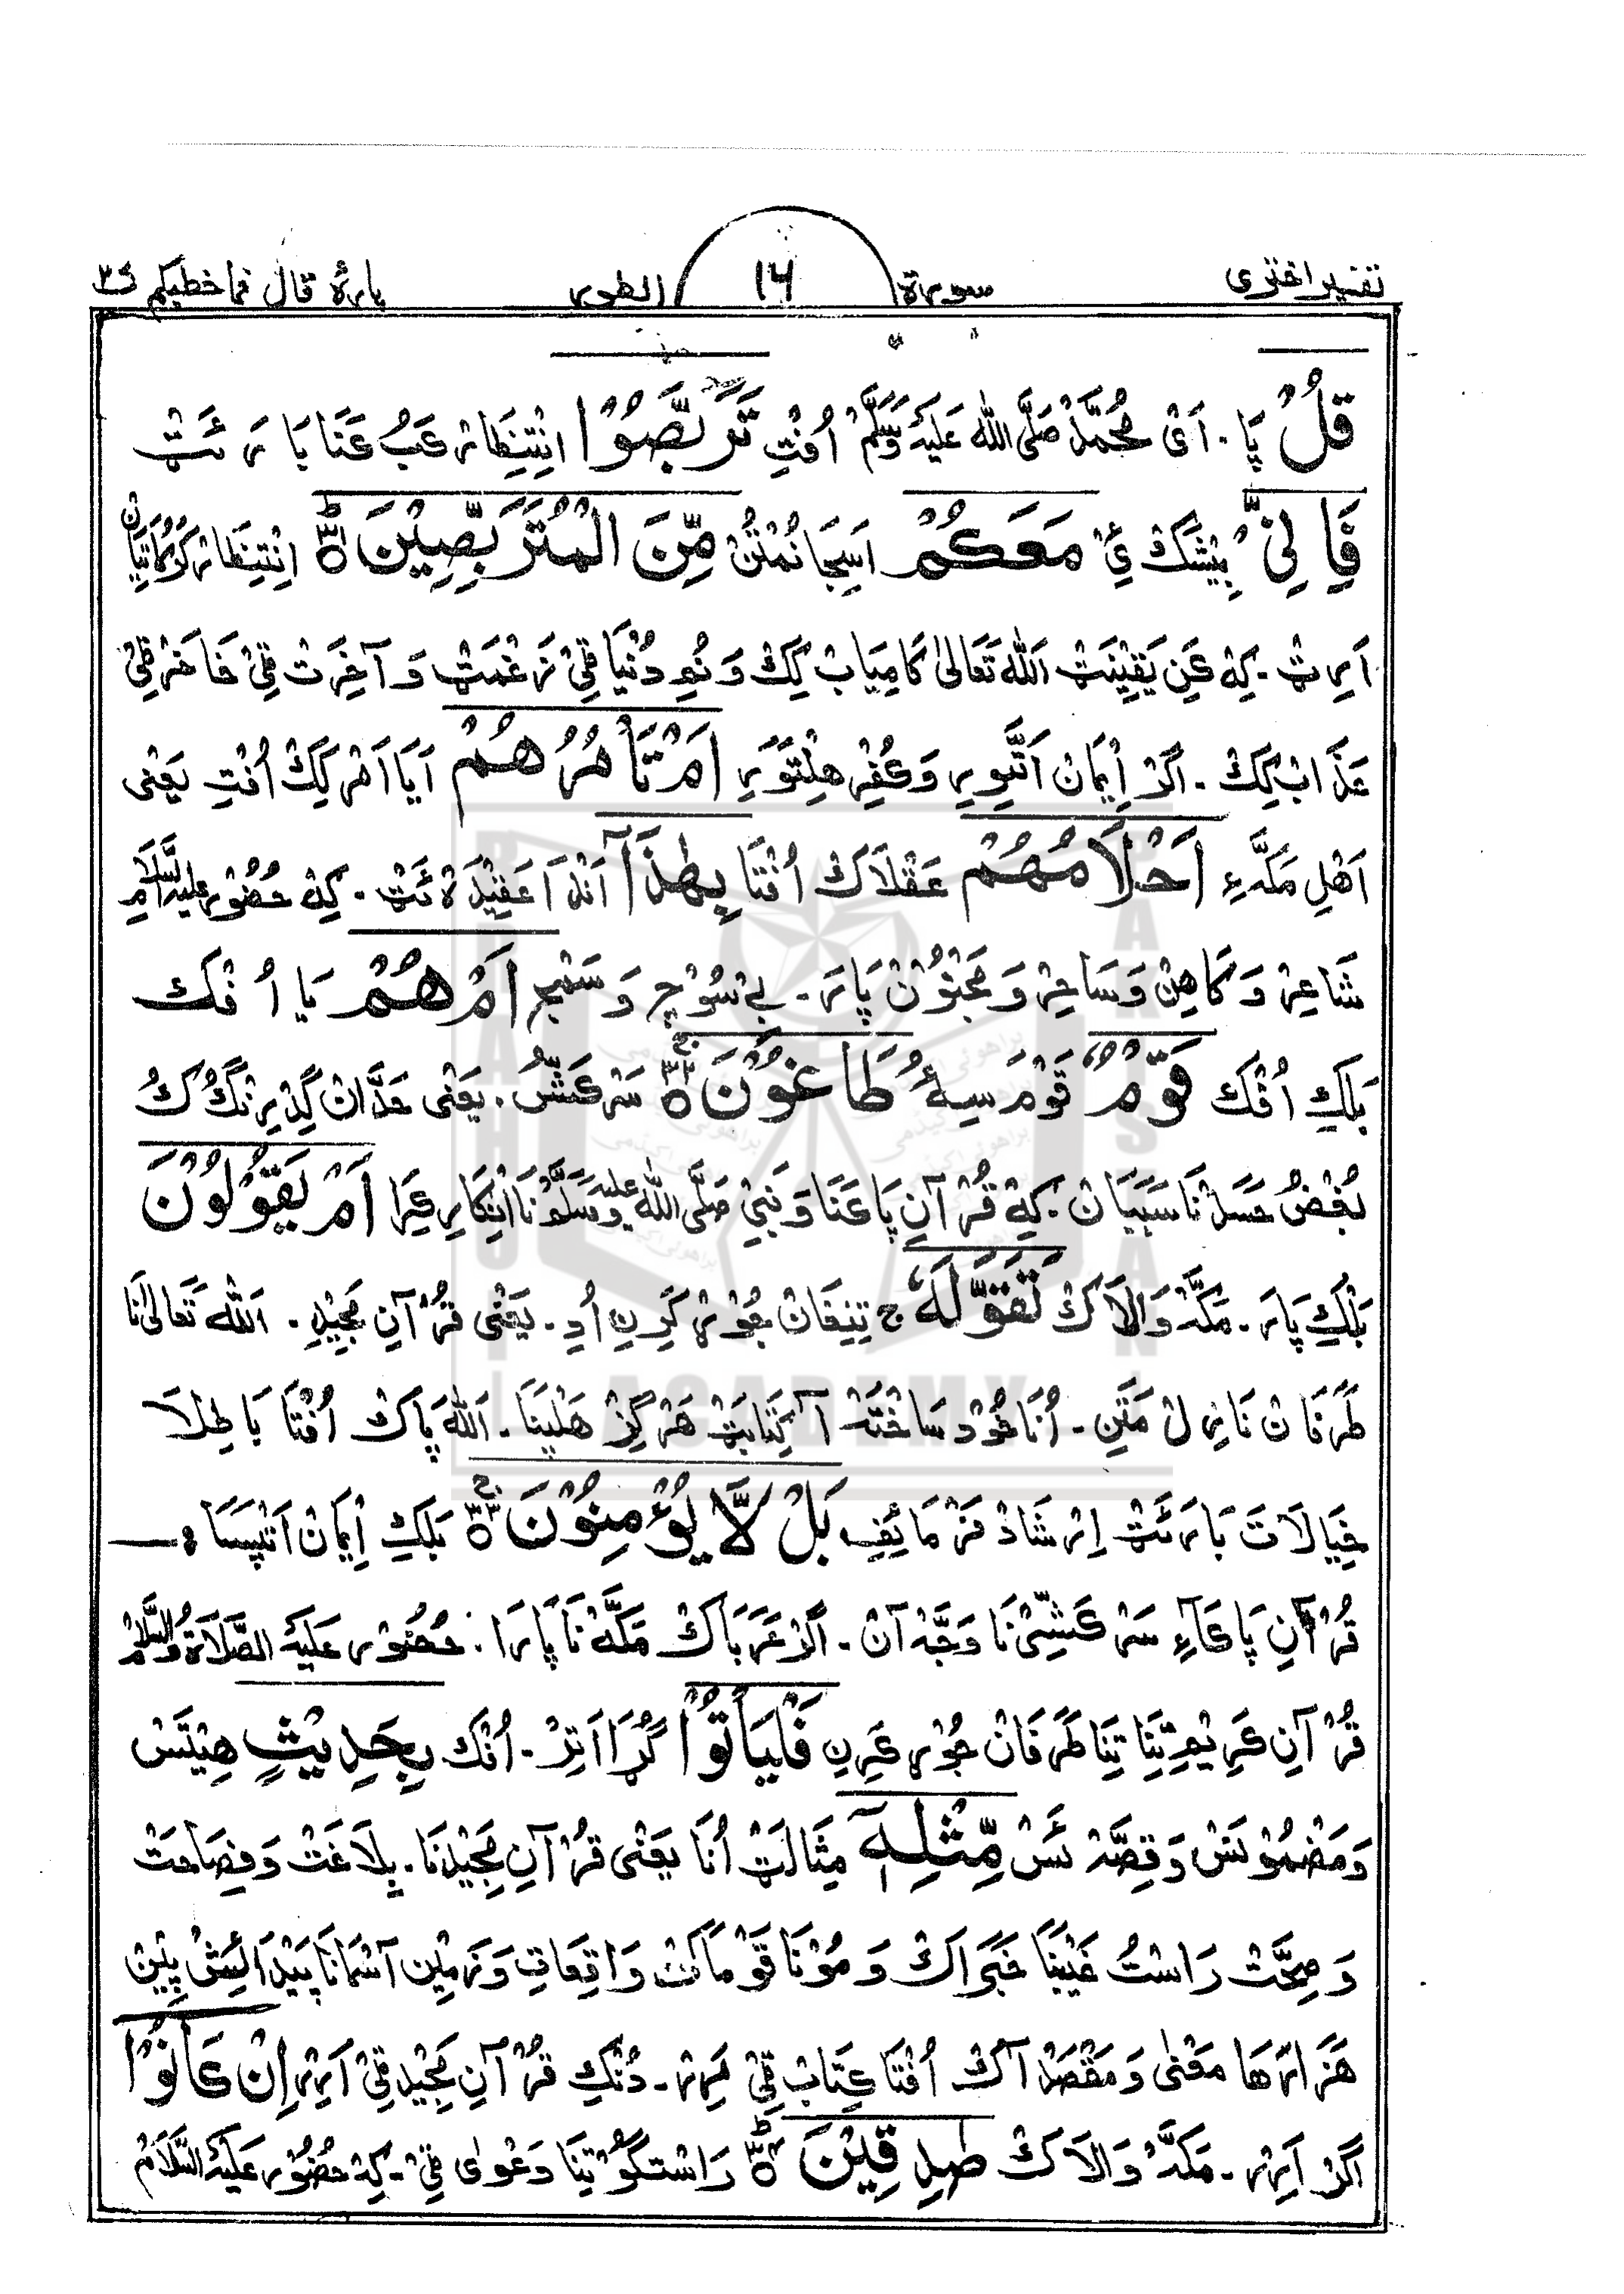 تفسیر اختری سورۃ ١٦ الطور پارۂ قال فما خطبکم ٢٧
قُلْ پَا۔ اَیْ مُحَمَّدْ صَلَّی اللّٰہُ عَلَیْہِ وَسَلَّمْ اُفْتِ تَرَبَّصُوْا اِنْتِظَار عَبُ عَنَا بَا رَئَتْ
فَاِنِّیْ بِیْشَکْ ئِیْ مَعَکُمْ اَسِجَا نُمْتُنْ مِّنَ الْمُتَرَبِّصِیْنَ اِنْتِظَار کَرُکَاتِیَان
اَرِٹ۔ کِہْ عَنِ یَقِیْنَتْ اَللّٰہ تَعَالیٰ کَامِیَابْ کِکْ وَ نُوِ دُنْیَا قِیْ نَرغْمَتْ وَ آخِرَتْ قِیْ خَاخَرْ قِیْ
عَذَابْ کِکْ۔ اَگَرْ اِیْمَانْ اَتَّبِوِرِ وَ کُفِر ھِلْتَوِرِ اَمْ تَاْمُرُھُمْ آیَا اَمْر کِکْ اُفْتِ یَعْنِی
اَھْلِ مَکَّہءِ اَحْلَامُھُمْ عَقْلَاکْ اُفْتَا بِھٰذَآ اَنْدَا عَقِیْدَہْ ئَتْ۔ کِہْ حُضُوْر عَلَیْہِ السَّلَامِ
شَاعِرْ وَ کَاھِنْ وَ سَاحِرْ وَ مَجْنُوْنْ پَارَ۔ بے سُوْچ وَ سَمْجِ اَمْ ھُمْ یَا اُفْکْ
بَلْکِ اُفْکْ قَوْمٌ قَوْمَ سِہْ طَاغُوْنَ سَرْکَشُّ۔ یَعْنِی حَدَّانْ گِذْرِنْگُکْ
بُغْضُ حَسَدْ نَا سَبَبَانْ۔ کِہْ قُرْآنِ پَاکَنَا وَ نَبِیْ صَلَّی اللّٰہُ عَلَیْہِ وَسَلَّمْ نَا اِنْکَارِ کِرَا اَمْ یَقُوْلُوْنَ
بَلْکِ پَارَ۔ مَکَّہْ وَالَاکْ تَقَوَّلَہٗ ج تِنِفَانْ جُوْڑْ کَرِنِ اُدِ۔ یَعْنِی قُرْآنِ مَجِیْدِ۔ اَللّٰہ تَعَالیٰ نَا
طَرَفَانْ نَازِل مَتَنِ۔ اُنَا خُوْد سَاخْتَہْ آ کِتَابَتْ ھَرْ گِزْ ھَلْیْنَا۔ اَللّٰہ پَاکْ اُفْتَا بَاطِلَا
خِیَالَاتَ بَارَئَتْ اِرْشَادْ فَرْمَائِفِ بَلْ لَّا یُؤْمِنُوْنَ بَلْکِ اِیْمَانْ اَتْپَسَا۔
قُرْآنِ پَاکَاءِ سَرْکَشِّیْ نَا وَجَہْ آنْ۔ اَگَرْ عَرَبَاکْ مَکَّہْ نَا پَارَا۔ حُضُوْر عَلَیْہِ الصَّلَاۃُ وَالسَّلَامْ
قُرْآنِ کَرِیْمِ تِنَا تِنَا طَرَفَانْ جُوْڑ کَرِنِ فَلْیَاْتُوْا گُڑَا اَتِرْ۔ اُفْکْ بِحَدِیْثٍ ھِیْتَسْ
وَ مَضْمُوْنَسْ وَ قِصَّہْ ئَسْ مِّثْلِہٖٓ مِثَالَتْ اُنَا یَعْنِی قُرْآنِ مَجِیْدْنَا۔ بِلَاغَتْ وَ فِصَاحَتْ
وَ صِحَّتْ رَاسْتُ غَیْبْنَا خَبَرَاکْ وَ مُوْنَا قَوْمَاتْ وَاقِعَاتِ وَ زَمِیْن آسْمَانَا پَیْدَائِشْ پِیْنْ
ھَزَارْھَا مَعْنیٰ وَ مَقْصَدْ آکْ اُفْتَا کِتَابْ قِیْ مَرِرْ۔ دُنْکِ قُرْآنِ مَجِیْد قِیْ اَرِرْ اِنْ کَانُوْا
اَگَرْ اَرِرْ۔ مَکَّہْ وَالَاکْ صٰدِقِیْنَ رَاسْتگُوْ تِنَا دَعْوٰی قِیْ۔ کِہْ حُضُوْر عَلَیْہِ السَّلَامْ